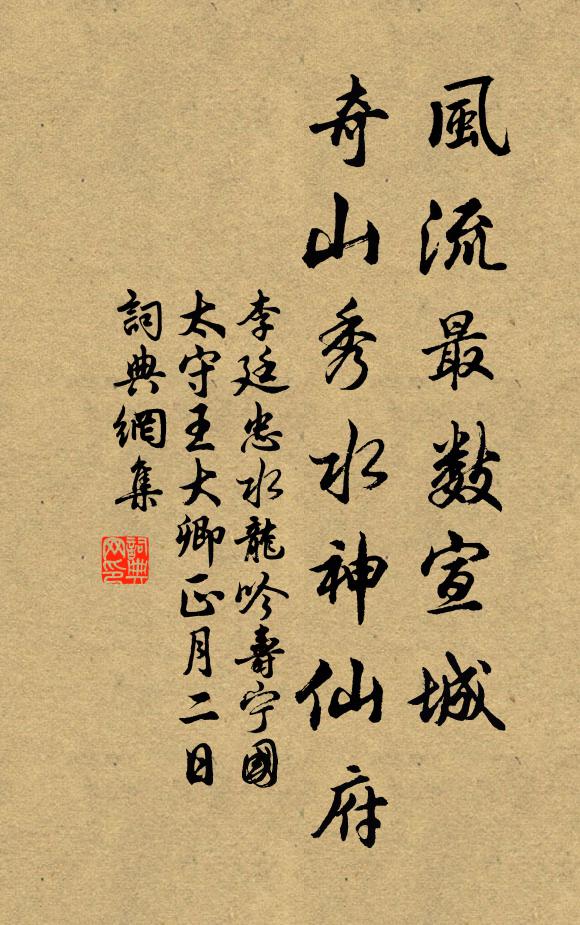 風流最数宣城
奇山秀水神仙府
李廷忠水龍吟壽宁國
太守王大卿正月二日
詞典網集
詞典
网印